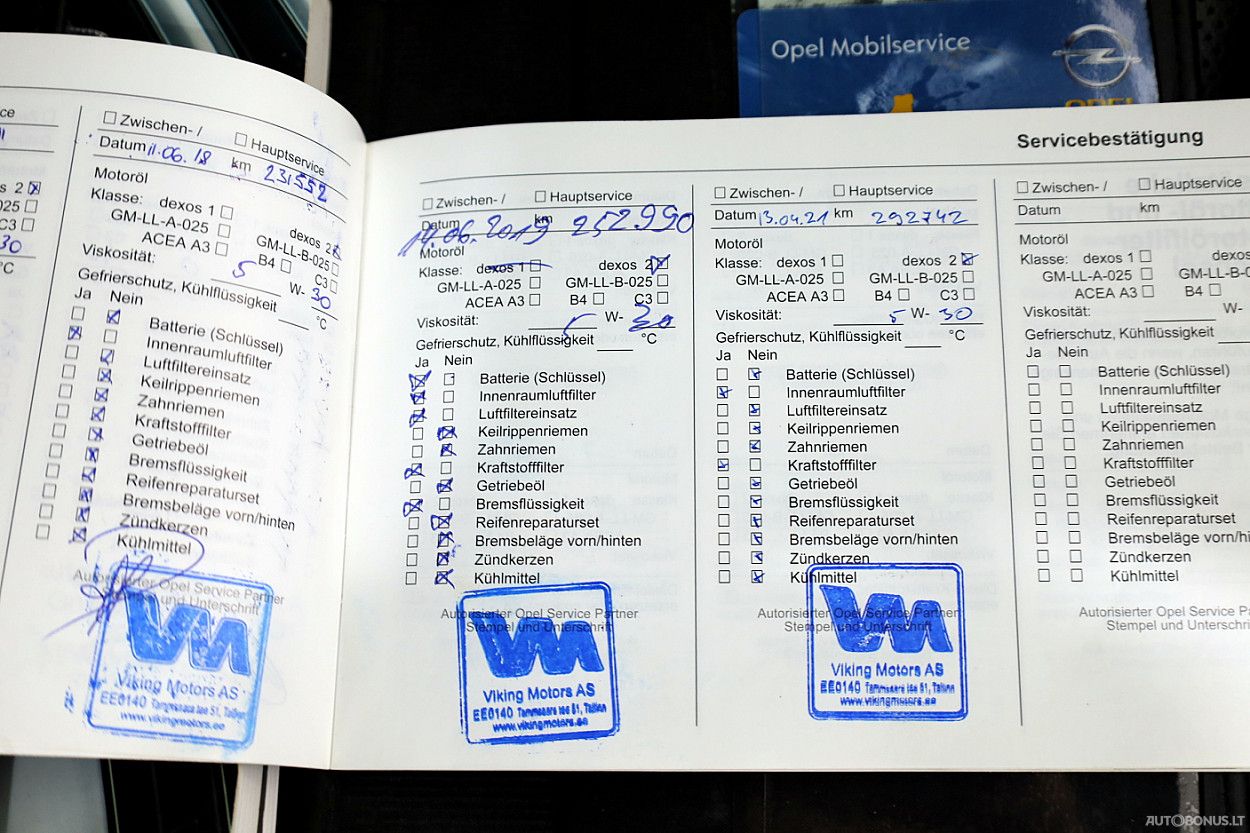 Opel Mobilservice
OPEL
Servicebestätigung
ce
s 2
025
C3
30
°C
Zwischen- /
Hauptservice
Datum 11.06.18 km 231552
Motoröl
Klasse: dexos 1
dexos 2
GM-LL-A-025
GM-LL-B-025
ACEA A3 B4 C3
Viskosität: 5 W- 30
Gefrierschutz, Kühlflüssigkeit °C
Ja Nein
Batterie (Schlüssel)
Innenraumluftfilter
Luftfiltereinsatz
Keilrippenriemen
Zahnriemen
Kraftstofffilter
Getriebeöl
Bremsflüssigkeit
Reifenreparaturset
Bremsbeläge vorn/hinten
Zündkerzen
Kühlmittel
Autorisierter Opel Service Partner
Stempel und Unterschrift
VM
Viking Motors AS
EE0140 Tammsaare tee 51, Tallinn
www.vikingmotors.ee
Zwischen- / Hauptservice
Datum km
14.06.2019 252990
Motoröl
Klasse: dexos 1 dexos 2
GM-LL-A-025 GM-LL-B-025
ACEA A3 B4 C3
Viskosität: 5 W- 30
Gefrierschutz, Kühlflüssigkeit °C
Ja Nein
Batterie (Schlüssel)
Innenraumluftfilter
Luftfiltereinsatz
Keilrippenriemen
Zahnriemen
Kraftstofffilter
Getriebeöl
Bremsflüssigkeit
Reifenreparaturset
Bremsbeläge vorn/hinten
Zündkerzen
Kühlmittel
Autorisierter Opel Service Partner
Stempel und Unterschrift
VM
Viking Motors AS
EE0140 Tammsaare tee 51, Tallinn
www.vikingmotors.ee
Zwischen- / Hauptservice
Datum 13.04.21 km 292742
Motoröl
Klasse: dexos 1 dexos 2
GM-LL-A-025 GM-LL-B-025
ACEA A3 B4 C3
Viskosität: 5 W- 30
Gefrierschutz, Kühlflüssigkeit °C
Ja Nein
Batterie (Schlüssel)
Innenraumluftfilter
Luftfiltereinsatz
Keilrippenriemen
Zahnriemen
Kraftstofffilter
Getriebeöl
Bremsflüssigkeit
Reifenreparaturset
Bremsbeläge vorn/hinten
Zündkerzen
Kühlmittel
Autorisierter Opel Service Partner
Stempel und Unterschrift
VM
Viking Motors AS
EE0140 Tammsaare tee 51, Tallinn
www.vikingmotors.ee
Zwischen- / Hauptservice
Datum km
Motoröl
Klasse: dexos 1 dexos 2
GM-LL-A-025 GM-LL-B-0
ACEA A3 B4 C
Viskosität: W-
Gefrierschutz, Kühlflüssigkeit
Ja Nein
Batterie (Schlüssel)
Innenraumluftfilter
Luftfiltereinsatz
Keilrippenriemen
Zahnriemen
Kraftstofffilter
Getriebeöl
Bremsflüssigkeit
Reifenreparaturset
Bremsbeläge vorn/hi
Zündkerzen
Kühlmittel
Autorisierter Opel Service Pa
Stempel und Unterschri
AUTOBONUS.LT